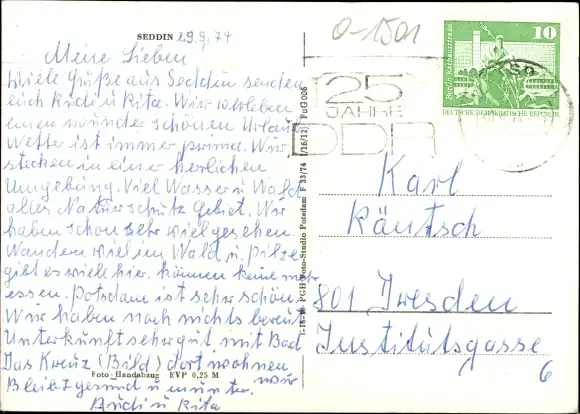 SEDDIN 29.9.74
0-1501
Meine Lieben
Viele Grüße aus Seddin senden
euch Rudi u Rita. Wir verleben
einen wunder schönen Urlaub
Wetter ist immer prima. Wir
stecken in einer herlichen
Umgebung. Viel Wasser u Wald
alles Naturschutz Gebiet. Wir
haben schon sehr viel gesehen.
Wandern viel im Wald u. Pilze
gibt es viele hier. können keine mehr
essen. Potsdam ist sehr schön.
Wir haben noch nichts bereut
Unterkunft sehr gut mit Bad
Das Kreuz (Bild) dort wohnen
wir
Bleibt gesund u munter.
Rudi u Rita
Foto-Handabzug EVP 0,25 M
I-16-16 PGH Foto-Studio Potsdam F 33/74 (16/12) FuG 006
25
JAHRE
DDR
10
Berlin, Rathausstraße
DEUTSCHE DEMOKRATISCHE REPUBLIK
Karl
Räntsch
801 Dresden
Institutsgasse
6